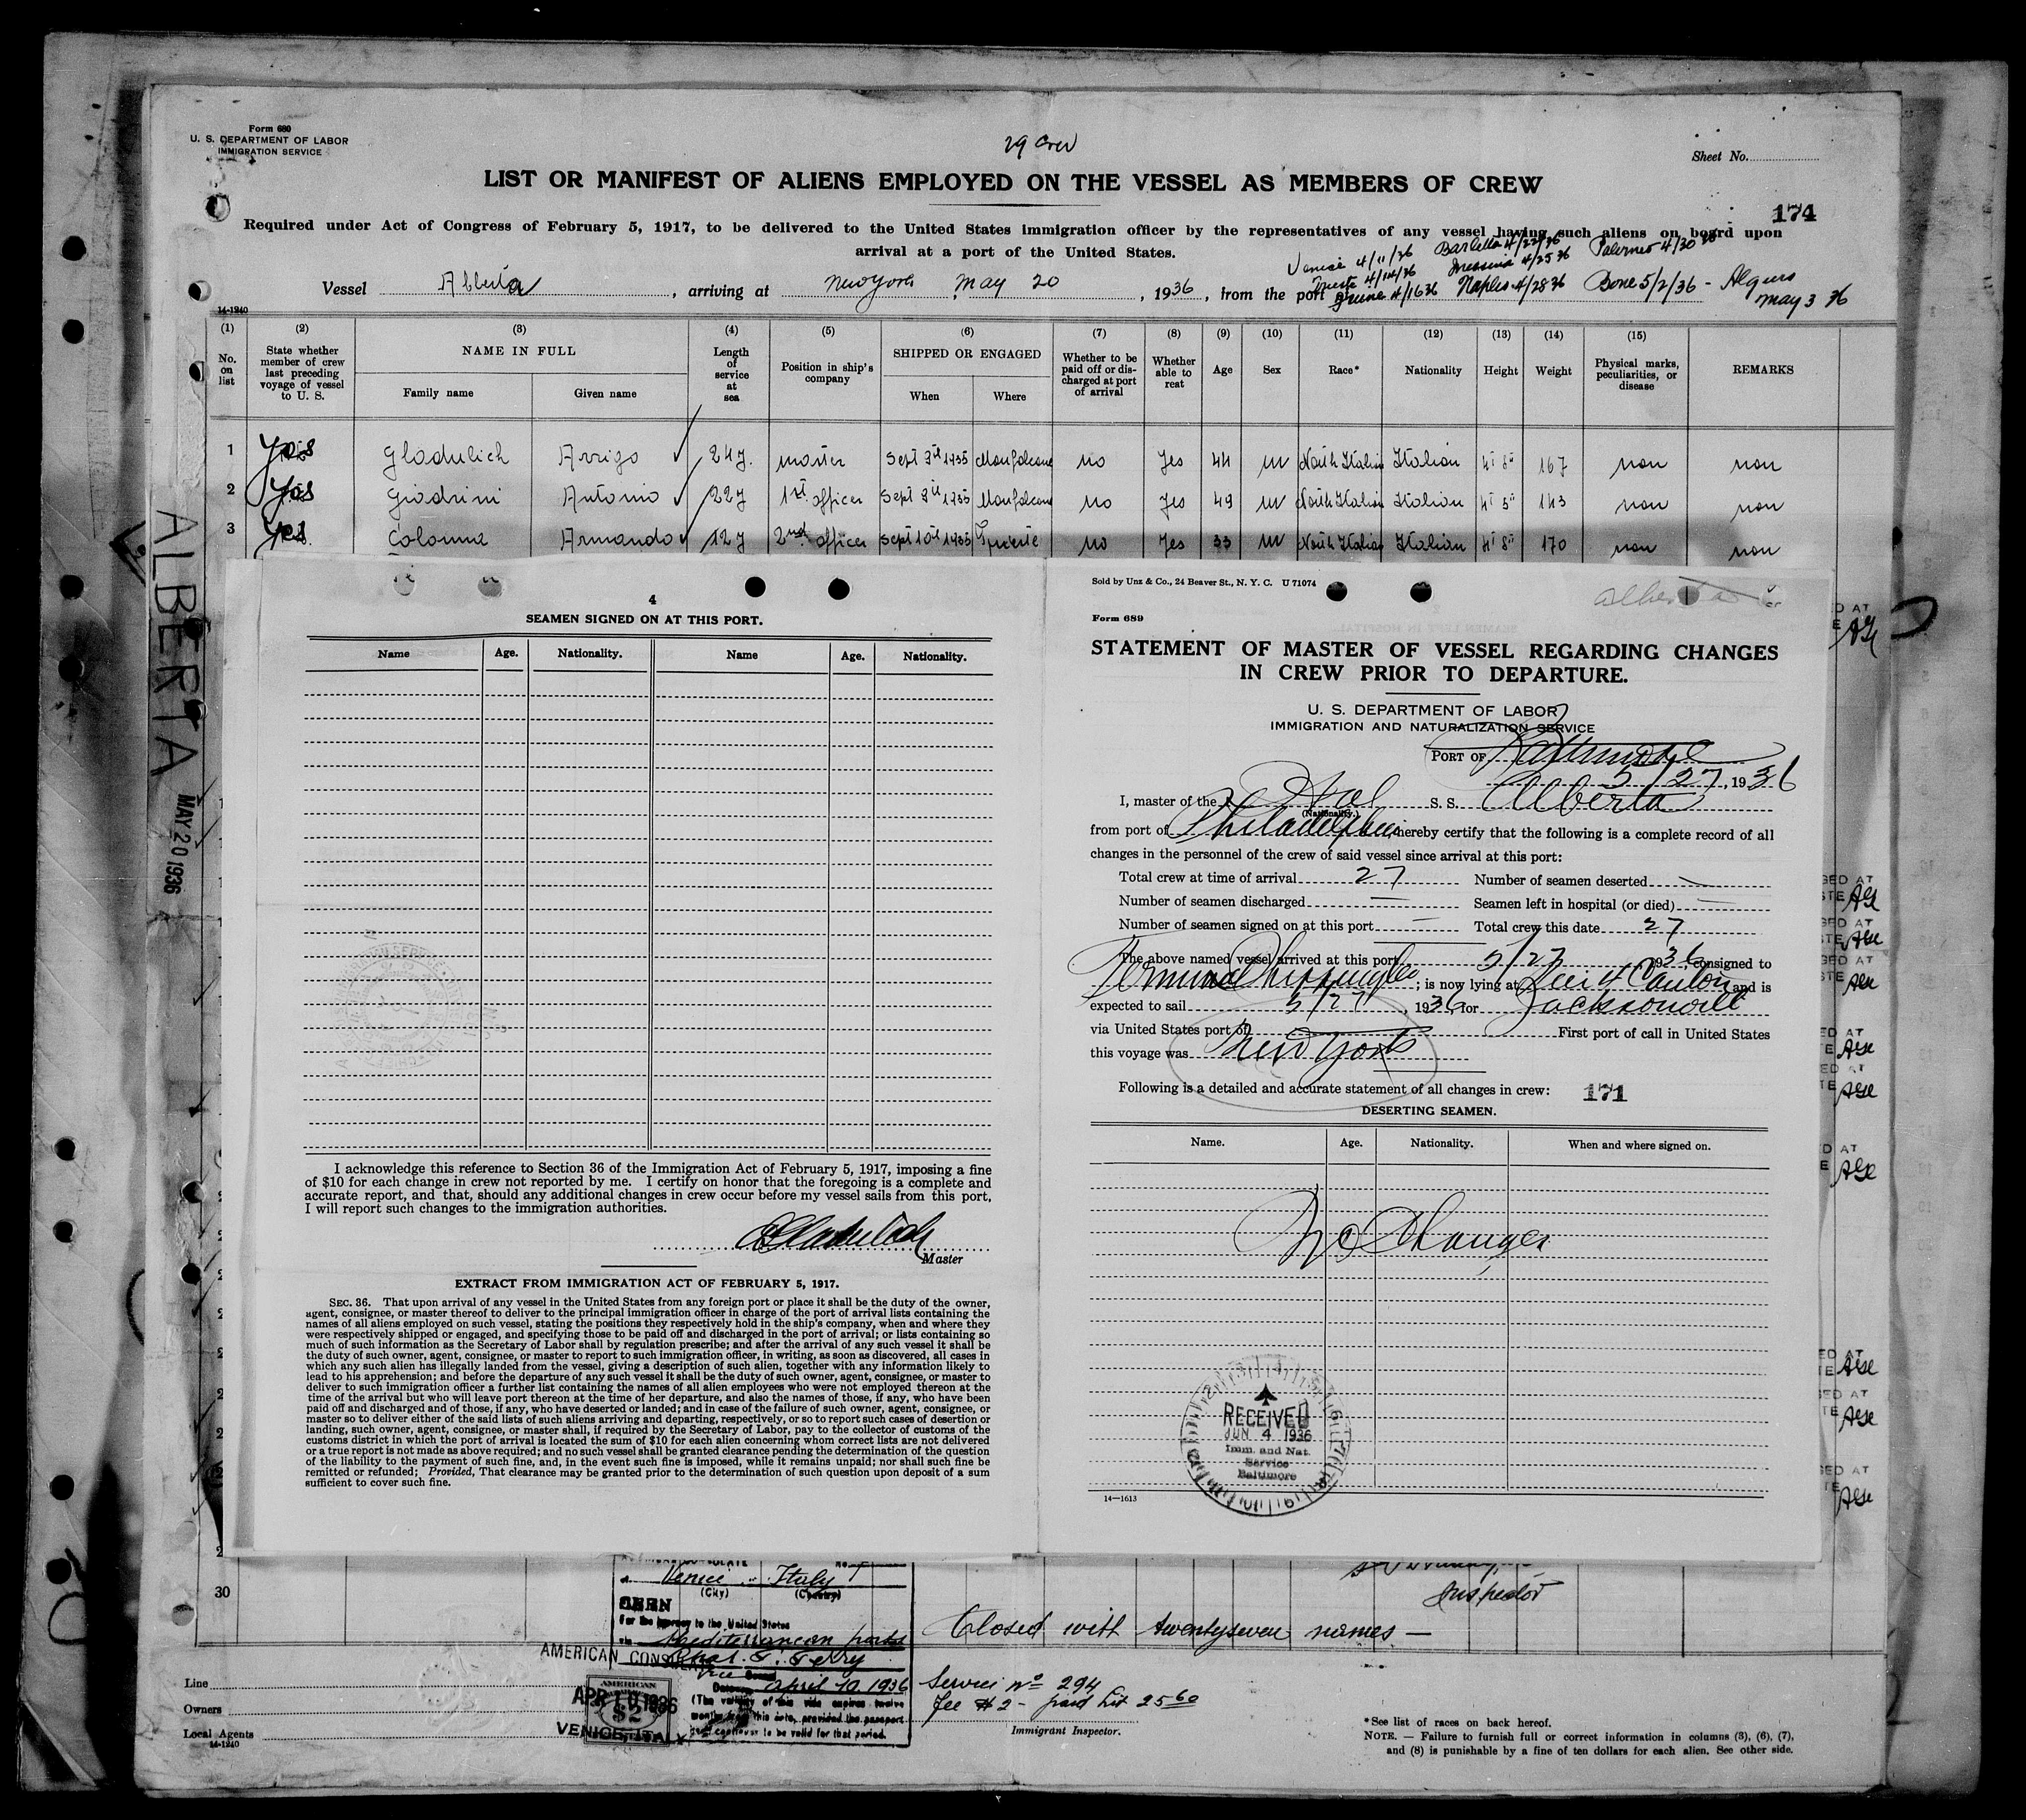 Form 680
U. S. DEPARTMENT OF LABOR
IMMIGRATION SERVICE
29 Crew
Sheet No.
LIST OR MANIFEST OF ALIENS EMPLOYED ON THE VESSEL AS MEMBERS OF CREW
174
Required under Act of Congress of February 5, 1917, to be delivered to the United States immigration officer by the representatives of any vessel having such aliens on board upon
arrival at a port of the United States.
Venice 4/11/36 Barletta 4/22/36 Palermo 4/30 36
Trieste 4/14/36 Messina 4/25 36
Vessel Alberta, arriving at New York May 20, 1936, from the port of Fiume 4/16 36 Naples 4/28 36 Bone 5/2/36 - Algiers
May 3 36
14-1240
(1) (2) (3) (4) (5) (6) (7) (8) (9) (10) (11) (12) (13) (14) (15)
No. on list State whether member of crew last preceding voyage of vessel to U. S. NAME IN FULL Family name Given name Length of service at sea Position in ship's company SHIPPED OR ENGAGED When Where Whether to be paid off or discharged at port of arrival Whether able to read Age Sex Race* Nationality Height Weight Physical marks, peculiarities, or disease REMARKS
1 Yes Gladulich Arrigo 24y. master Sept 3rd 1935 Monfalcone no Yes 44 m North Italian Italian 4' 8" 167 non non
2 Yes Giadrini Antonio 22y 1st officer Sept 3rd 1935 Monfalcone no Yes 49 m North Italian Italian 4' 5" 143 non non
3 Yes Colonna Armando 12y 2nd officer Sept 10th 1935 Trieste no Yes 33 m North Italian Italian 4' 8" 170 non non
ALBERTA
MAY 20 1936
4
SEAMEN SIGNED ON AT THIS PORT.
Name Age. Nationality. Name Age. Nationality.
I acknowledge this reference to Section 36 of the Immigration Act of February 5, 1917, imposing a fine
of $10 for each change in crew not reported by me. I certify on honor that the foregoing is a complete and
accurate report, and that, should any additional changes in crew occur before my vessel sails from this port,
I will report such changes to the immigration authorities.
AGladulich
Master
EXTRACT FROM IMMIGRATION ACT OF FEBRUARY 5, 1917.
SEC. 36. That upon arrival of any vessel in the United States from any foreign port or place it shall be the duty of the owner,
agent, consignee, or master thereof to deliver to the principal immigration officer in charge of the port of arrival lists containing the
names of all aliens employed on such vessel, stating the positions they respectively hold in the ship's company, when and where they
were respectively shipped or engaged, and specifying those to be paid off and discharged in the port of arrival; or lists containing so
much of such information as the Secretary of Labor shall by regulation prescribe; and after the arrival of any such vessel it shall be
the duty of such owner, agent, consignee, or master to report to such immigration officer, in writing, as soon as discovered, all cases in
which any such alien has illegally landed from the vessel, giving a description of such alien, together with any information likely to
lead to his apprehension; and before the departure of any such vessel it shall be the duty of such owner, agent, consignee, or master to
deliver to such immigration officer a further list containing the names of all alien employees who were not employed thereon at the
time of the arrival but who will leave port thereon at the time of her departure, and also the names of those, if any, who have been
paid off and discharged and of those, if any, who have deserted or landed; and in case of the failure of such owner, agent, consignee, or
master so to deliver either of the said lists of such aliens arriving and departing, respectively, or so to report such cases of desertion or
landing, such owner, agent, consignee, or master shall, if required by the Secretary of Labor, pay to the collector of customs of the
customs district in which the port of arrival is located the sum of $10 for each alien concerning whom correct lists are not delivered
or a true report is not made as above required; and no such vessel shall be granted clearance pending the determination of the question
of the liability to the payment of such fine, and, in the event such fine is imposed, while it remains unpaid; nor shall such fine be
remitted or refunded; Provided, That clearance may be granted prior to the determination of such question upon deposit of a sum
sufficient to cover such fine.
Sold by Unz & Co., 24 Beaver St., N. Y. C. U 71074
Alberta
Form 689
STATEMENT OF MASTER OF VESSEL REGARDING CHANGES
IN CREW PRIOR TO DEPARTURE.
U. S. DEPARTMENT OF LABOR
IMMIGRATION AND NATURALIZATION SERVICE
PORT OF Baltimore
5/27, 1936
I, master of the Ital S. S. Alberta
(Nationality.)
from port of Philadelphia, hereby certify that the following is a complete record of all
changes in the personnel of the crew of said vessel since arrival at this port:
Total crew at time of arrival 27 Number of seamen deserted —
Number of seamen discharged — Seamen left in hospital (or died) —
Number of seamen signed on at this port — Total crew this date 27
The above named vessel arrived at this port 5/27 1936, consigned to
Terminal Shipping Co; is now lying at Pier 4 Canton and is
expected to sail 5/27, 1936, for Jacksonville
via United States port of First port of call in United States
this voyage was New York
Following is a detailed and accurate statement of all changes in crew: 171
DESERTING SEAMEN.
Name. Age. Nationality. When and where signed on.
No Changes
RECEIVED
JUN 4 1936
Imm. and Nat.
Service
Baltimore
14—1613
30
Inspector
Venice Italy
(City) (Country)
SEEN
For the journey to the United States
via Mediterranean ports
Closed with twentyseven names —
AMERICAN CONSULATE
Chas. T. Terry
Vice Consul
Date April 10, 1936
(The validity of this visa expires twelve
months from this date, provided the passport
continues to be valid for that period.
APR 10 1936
AMERICAN
$2
VENICE, ITALY
Service No 294
Fee $2 — paid Lit 25 60
Immigrant Inspector.
Line
Owners
Local Agents
14-1240
*See list of races on back hereof.
NOTE. — Failure to furnish full or correct information in columns (3), (6), (7),
and (8) is punishable by a fine of ten dollars for each alien. See other side.